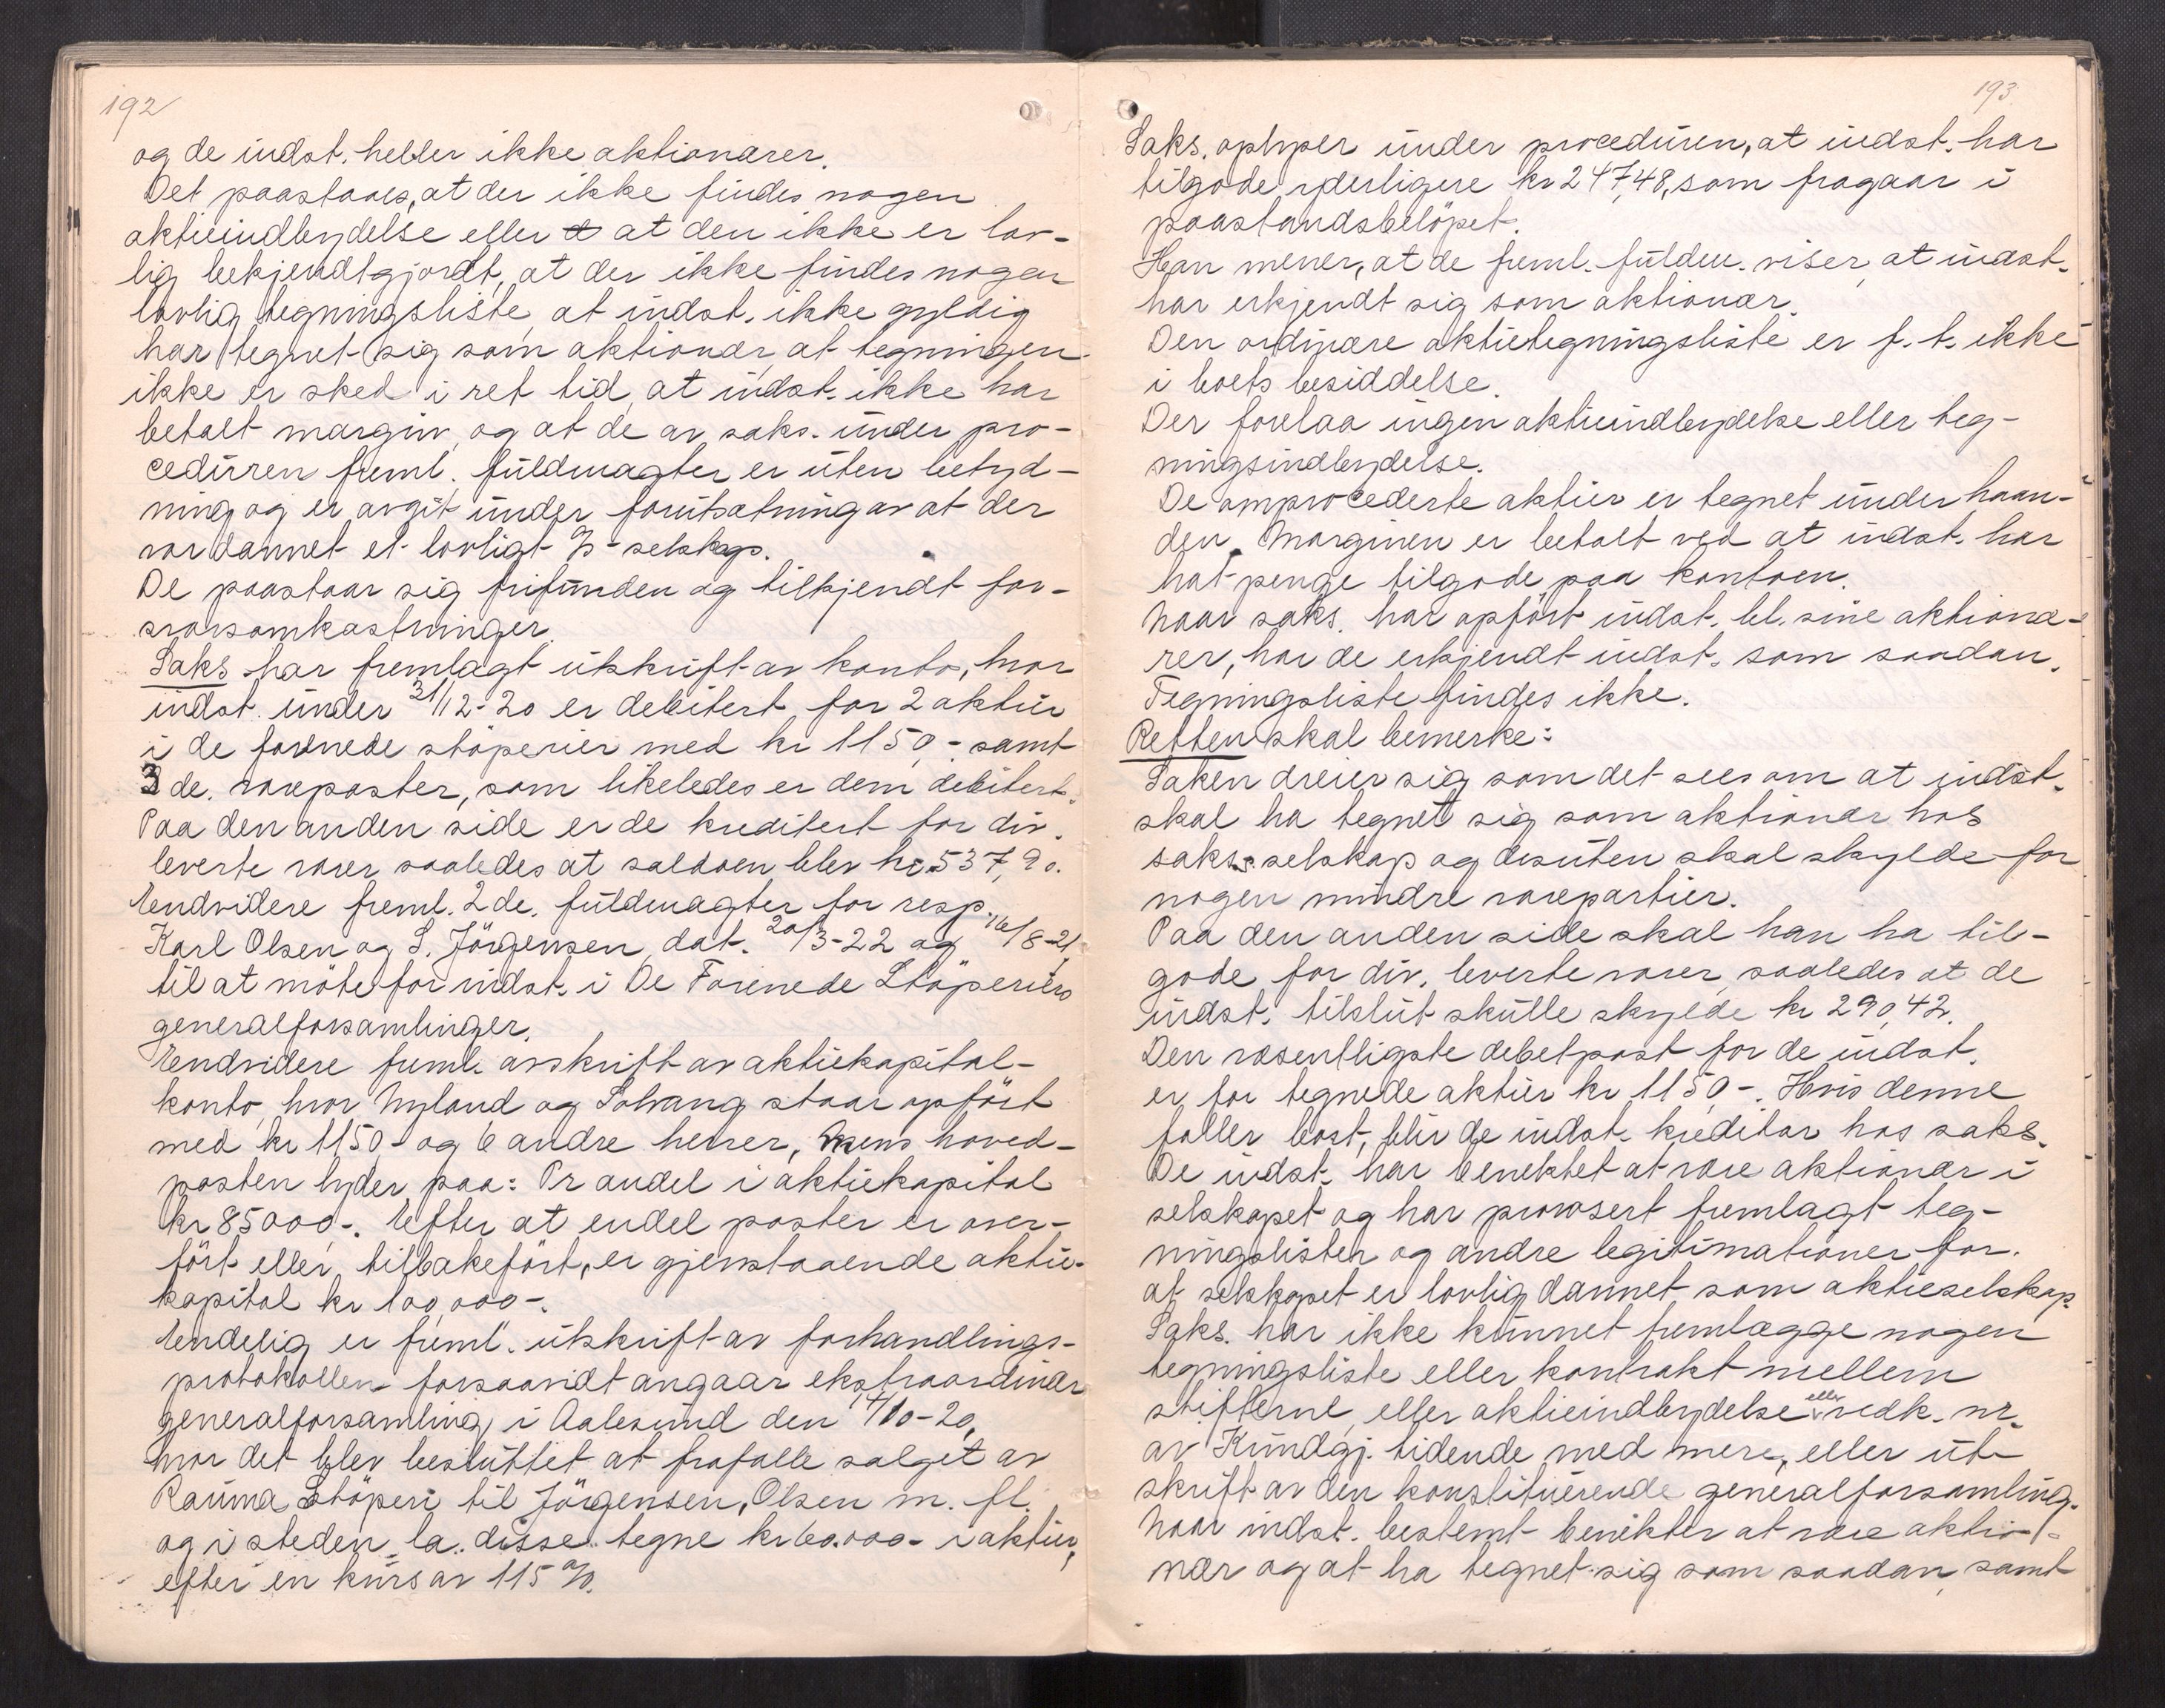 192
og de indst. heller ikke aktionærer.
Det paastaaes, at der ikke findes nogen
aktieindbydelse eller at den ikke er lov-
lig bekjendtgjordt, at der ikke findes nogen
lovlig tegningsliste, at indst. ikke gyldig
har tegnet sig som aktionær, at tegningen
ikke er sked i ret tid, at indst. ikke har
betalt margin, og at de av saks. under pro-
ceduren freml. fuldmagter er uten betyd-
ning og er avgit under forutsætning av at der
var dannet et lovligt A/S-selskap.
De paastaar sig frifunden og tilkjendt for-
svarsomkostninger.
Saks har fremlagt utskrift av konto, hvor
indst. under 31/12-20 er debitert for 2 aktier
i de forenede støperier med kr 1150,- samt
3 de. vareposter, som likeledes er dem debitert.
Paa den anden side er de kreditert for div.
leverte varer saaledes at saldoen blev kr. 537,90.
Endvidere freml. 2 de. fuldmagter for resp.
Karl Olsen og S. Jörgensen, dat. 20/3-22 og 16/8-21
til at möte for indst. i De Forenede Stöperiers
generalforsamlinger.
Endvidere freml. avskrift av aktiekapital-
konto, hvor Nyland og Solvang staar opfört
med kr 1150,- og 6 andre herrer, mens hoved-
posten lyder paa: Pr andel i aktiekapital
kr 85000,-. Efter at endel poster er over-
fört eller tilbakefört, er gjenstaaende aktie-
kapital kr 100,000-.
Endelig er freml. utskrift av forhandlings-
protokollen forsaavidt angaar ekstraordinær
generalforsamling i Aalesund den 14/10-20,
hvor det blev besluttet at frafalle salget av
Rauma Stöperi til Jörgensen, Olsen m. fl.
og i steden la disse tegne kr 60.000- i aktier,
efter en kurs av 115 %.
193
Saks. oplyser under proceduren, at indst. har
tilgode yderligere kr 247,48, som fragaar i
paastandsbelöpet.
Han mener, at de freml. fuldm. viser, at indst.
har erkjendt sig som aktionær.
Den ordinære aktietegningsliste er f. t. ikke
i boets besiddelse.
Der forelaa ingen aktieindbydelse eller teg-
ningsindbydelse.
De omprocederte aktier er tegnet under haan-
den. Marginen er betalt ved at indst. har
hat penge tilgode paa kontoen.
Naar saks. har opfört indst. bl. sine aktionæ-
rer, har de erkjendt indst. som saadan.
Tegningsliste findes ikke.
Retten skal bemerke:
Saken dreier sig som det sees om at indst.
skal ha tegnet sig som aktionær hos
saks. selskap og desuten skal skylde for
nogen mindre varepartier.
Paa den anden side skal han ha til-
gode for div. leverte varer, saaledes at de
indst. tilslut skulle skylde kr 290,42.
Den væsentligste debetpost for de indst.
er for tegnede aktier kr 1150,-. Hvis denne
faller bort, blir de indst. kreditor hos saks.
De indst. har benektet at være aktionær i
selskapet og har provosert fremlagt teg-
ningslister og andre legitimationer for.
at selskapet er lovlig dannet som aktieselskap.
Saks. har ikke kunnet fremlægge nogen
tegningsliste eller kontrakt mellem
stifterne, eller aktieindbydelse eller vedk. nr.
av Kundgj. tidende med mere, eller ut-
skrift av den konstituerende generalforsamling.
Naar indst. bestemt benekter at være aktio-
nær og at ha tegnet sig som saadan, samt